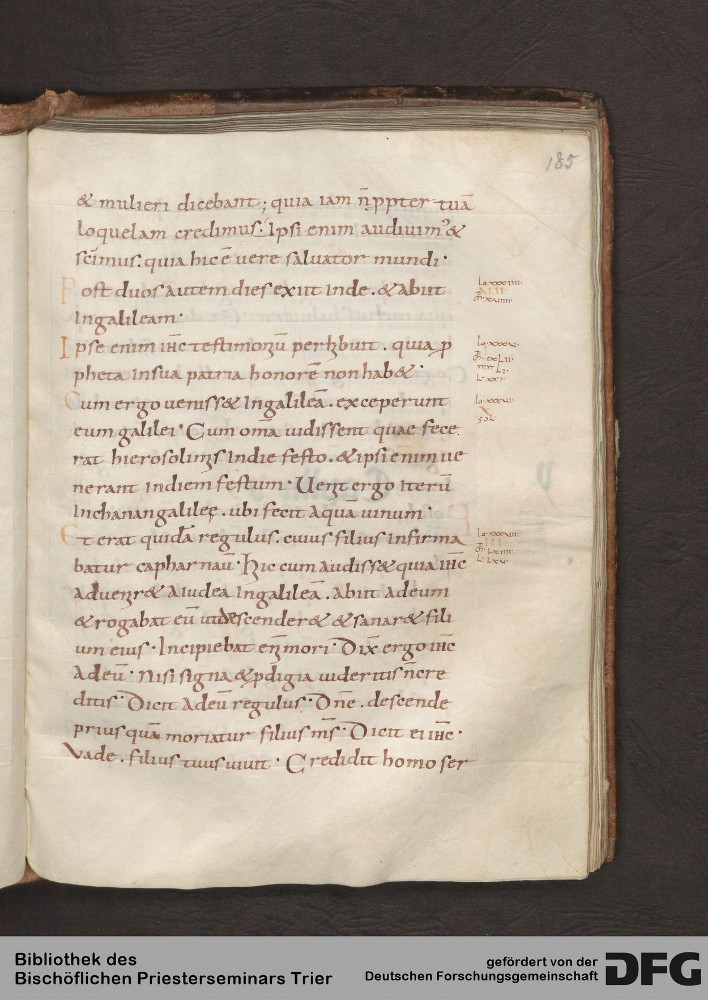 185
& mulieri dicebant; quia iam n̄ ꝓpter tuā
loquelam credimus. Ipsi enim audiuim' &
scimus. quia hic ē uere saluator mundi.
Post duos autem dies exiit inde. & abiit
In galileam.
Ipse enim ih̄c testimoniū perhibuit. quia ꝓ
pheta In sua patria honorē non hab&.
Cum ergo ueniss& In galileā. exceperunt
eum galilei. Cum om̄a uidissent quae fece
rat hierosolimis In die festo. & ipsi enim ue
nerant In diem festum. Uenit ergo Iterū
In chanan galileę. ubi fecit aqua uinum.
Et erat quidā regulus. cuius filius Infirma
batur capharnaū. Hic cum audiss& quia ih̄c
aduenir& a iudea In galileā. abiit ad eum
& rogabat eū ut descender& & sanar& fili
um eius. Incipiebat enim mori. Dix̄ ergo ih̄c
ad eū. Nisi signa & ꝓdigia uideritis n̄ cre
ditis. Dicit ad eū regulus. Dn̄e. descende
prius quā moriatur filius m̄s. Dicit ei ih̄c.
Vade. filius tuus uiuit. Credidit homo ser
Bibliothek des
Bischöflichen Priesterseminars Trier
gefördert von der
Deutschen Forschungsgemeinschaft
DFG